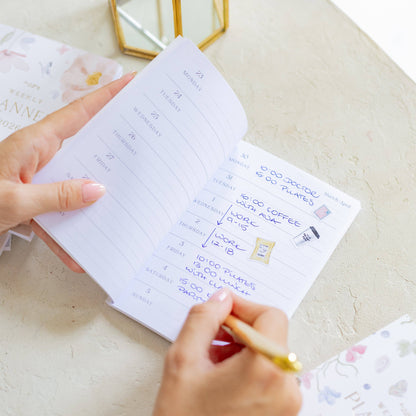 WEEKLY
2026
23
MONDAY
24
TUESDAY
25
WEDNESDAY
26
THURSDAY
27
FRIDAY
SATURDAY
SUNDAY
March/April
10:00 DOCTOR
15:00 PILATES
TUESDAY
16:00 COFFEE
WITH
1
WEDNESDAY
WORK
9-15
2
THURSDAY
WORK
12-18
3
FRIDAY
10:00 PILATES
13:00 LUNCH
WITH
4
SATURDAY
15:00
5
SUNDAY